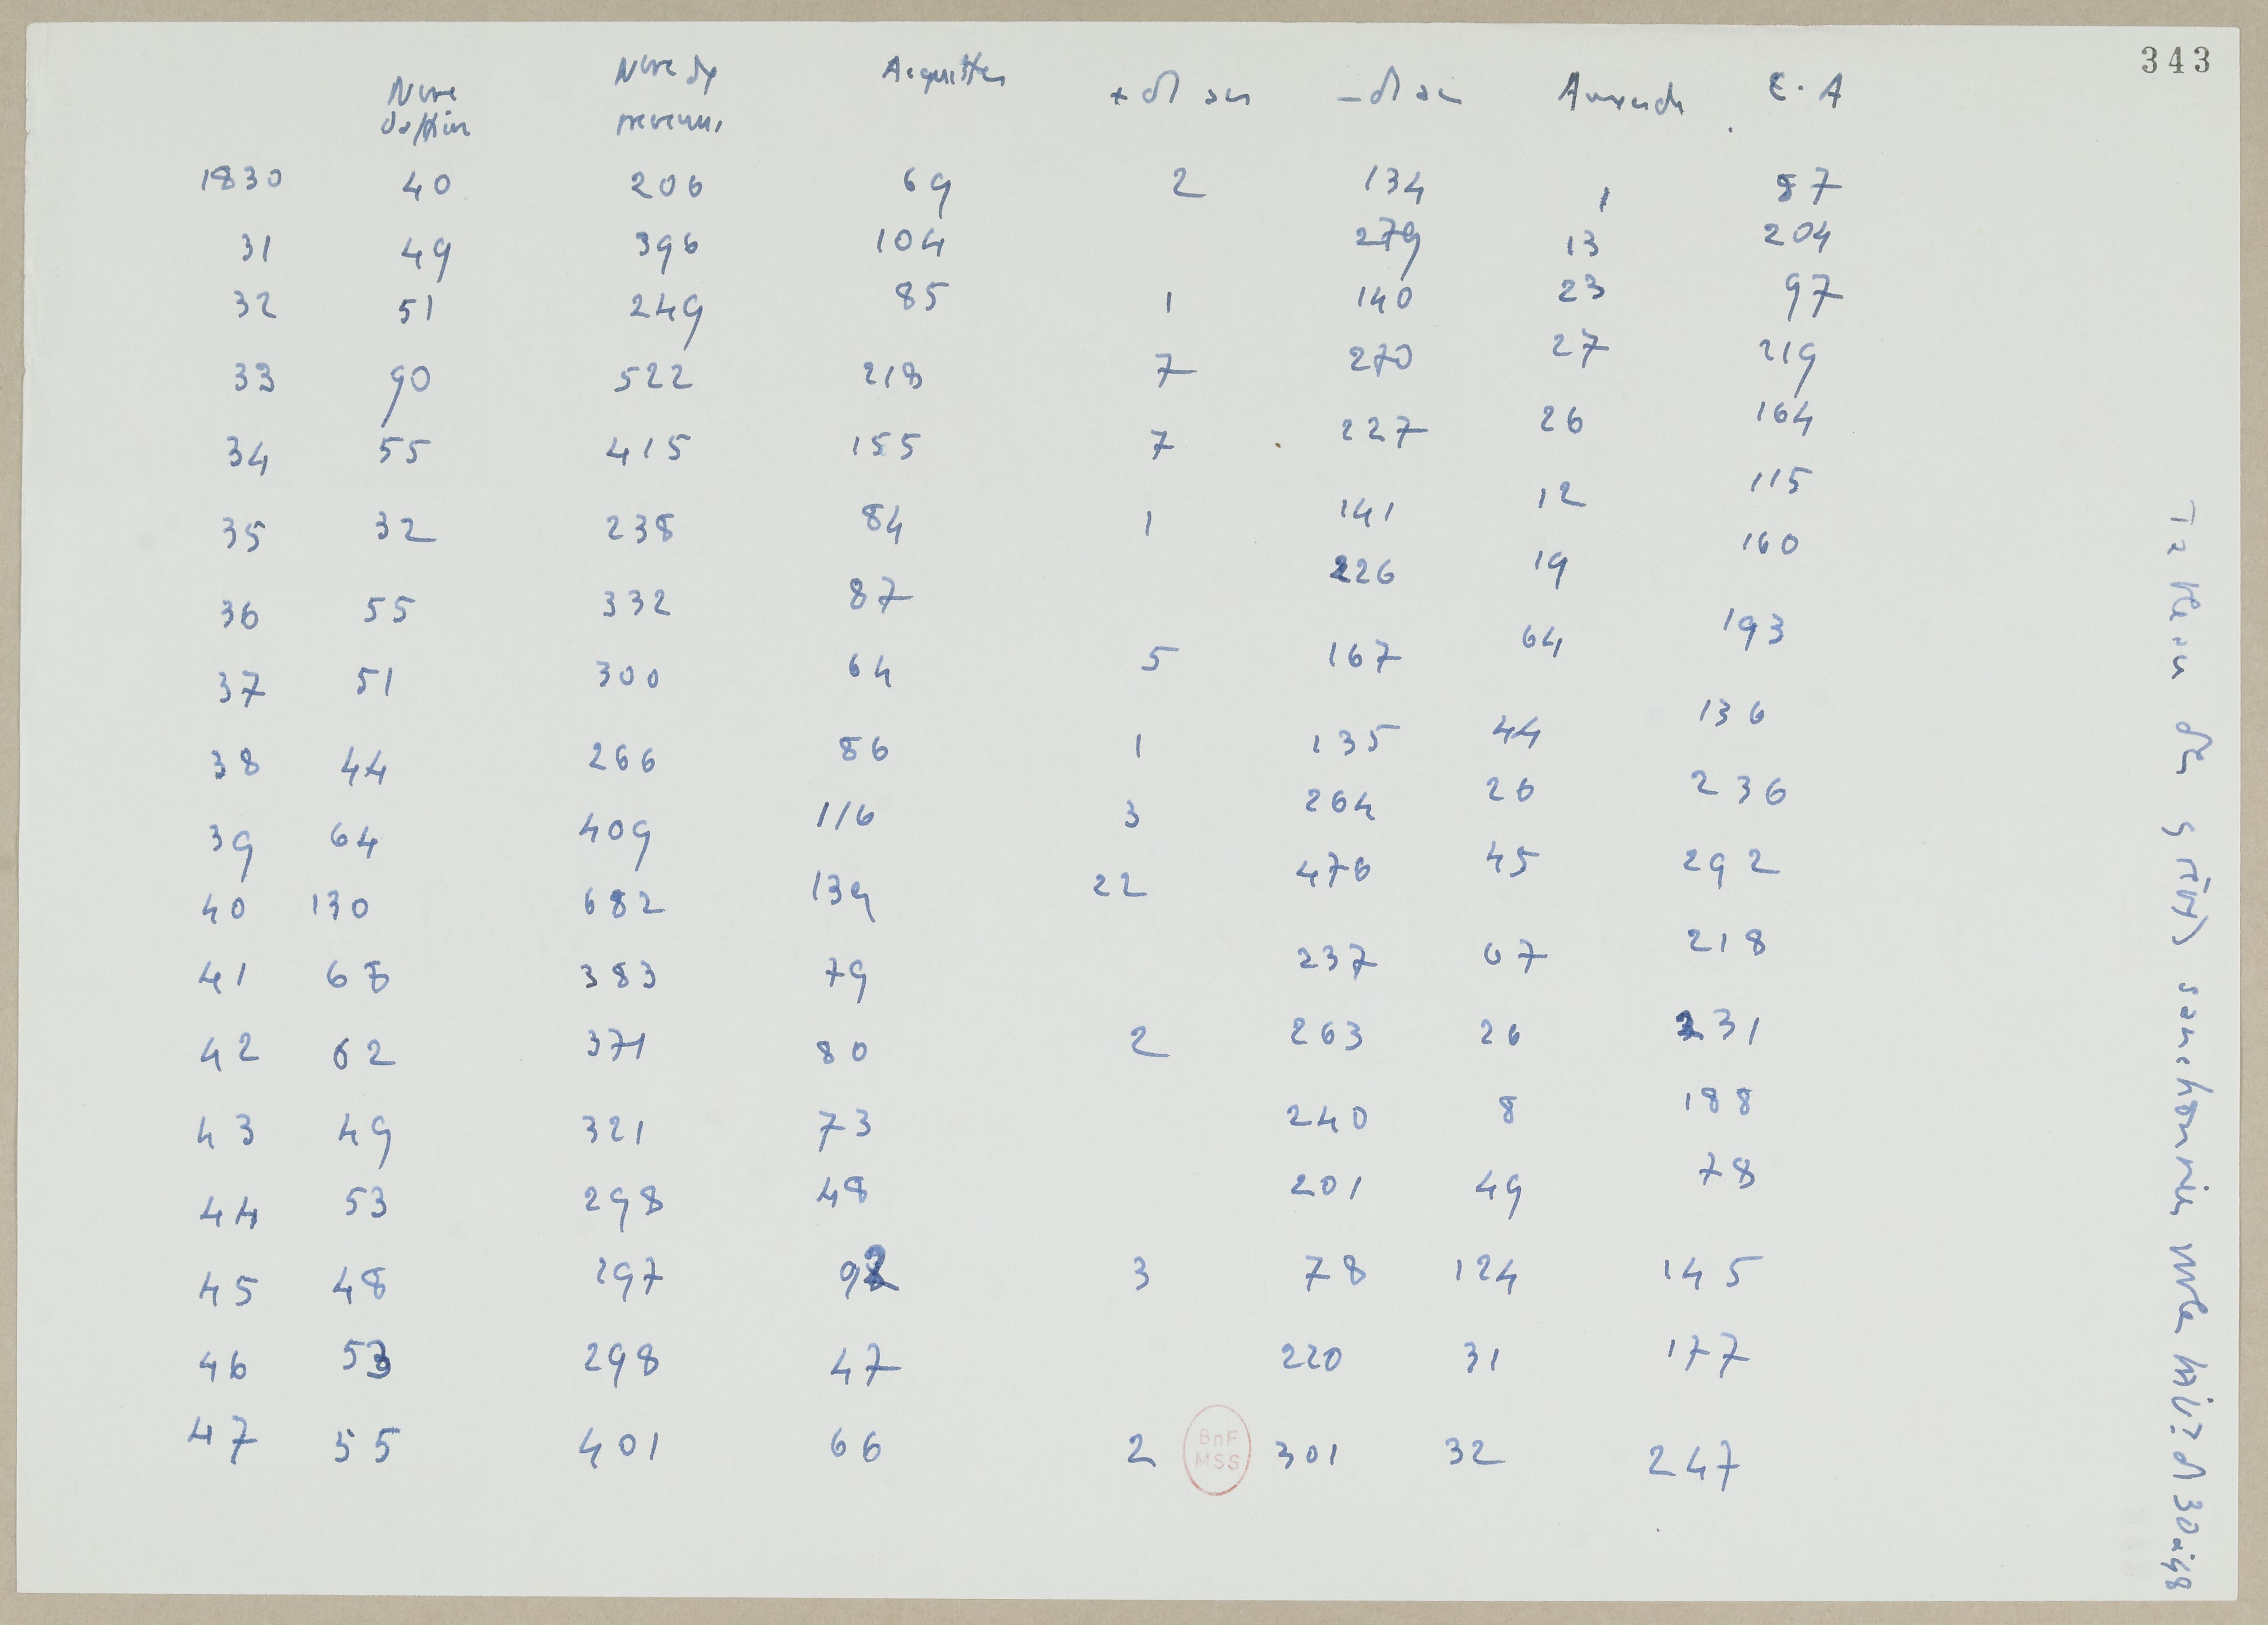 343
Nbre d'affaires Nbre de prévenus Acquittés + d'1 an - d'1 an Amende E. A
1830 40 206 69 2 134 1 87
31 49 396 104 279 13 204
32 51 249 85 1 140 23 97
33 90 522 218 7 270 27 219
34 55 415 155 7 227 26 164
35 32 238 84 1 141 12 115
36 55 332 87 226 19 160
37 51 300 64 5 167 64 193
38 44 266 86 1 135 44 136
39 64 409 116 3 264 26 236
40 130 682 139 22 476 45 292
41 68 383 79 237 67 218
42 62 371 80 2 263 26 231
43 49 321 73 240 8 188
44 53 298 48 201 49 78
45 48 297 92 3 78 124 145
46 53 298 47 220 31 177
47 55 401 66 2 301 32 247
BnF
MSS
Tableau des grèves sanctionnées 30 à 48